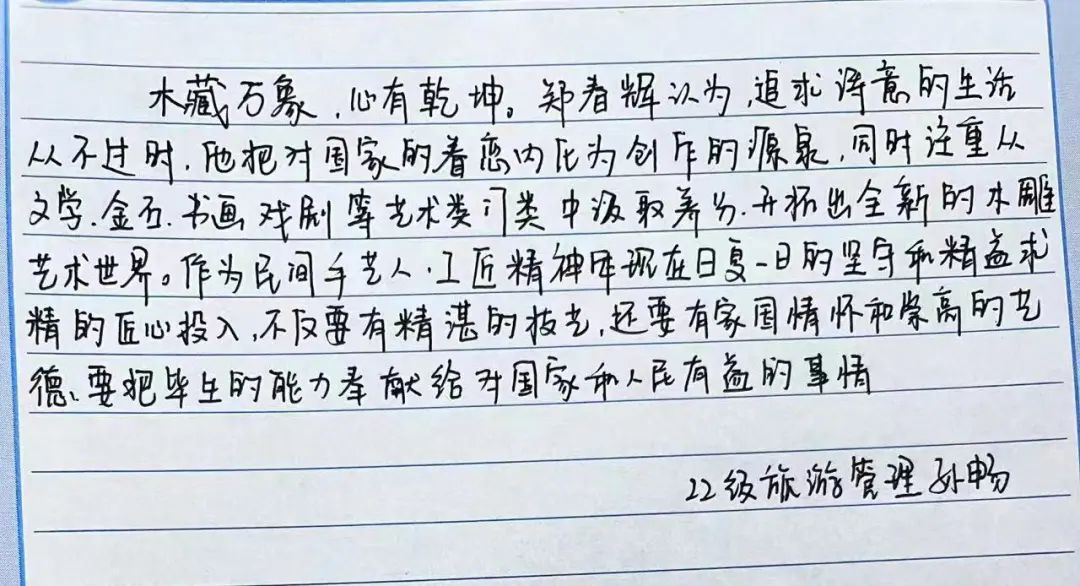 木藏万象,心有乾坤。郑春辉认为,追求诗意的生活
从不过时,他把对国家的眷恋内化为创作的源泉,同时注重从
文学.金石.书画戏剧等艺术类门类中汲取养分.开拓出全新的木雕
艺术世界。作为民间手艺人.工匠精神体现在日复一日的坚守和精益求
精的匠心投入,不仅要有精湛的技艺,还要有家国情怀和崇高的艺
德、要把毕生的能力奉献给对国家和人民有益的事情
22级旅游管理孙畅